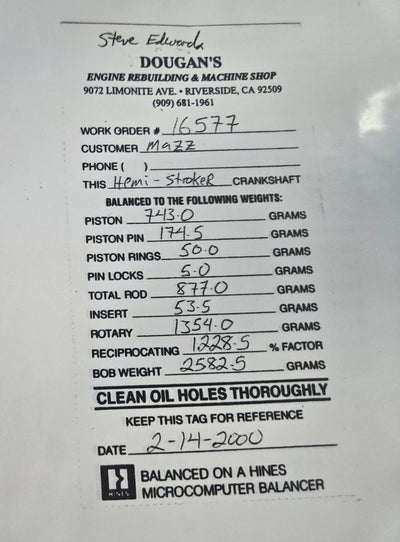 Steve Edwards
DOUGAN'S
ENGINE REBUILDING & MACHINE SHOP
9072 LIMONITE AVE. • RIVERSIDE, CA 92509
(909) 681-1961
WORK ORDER # 16577
CUSTOMER Mazz
PHONE ( )
THIS Hemi-Stroker CRANKSHAFT
BALANCED TO THE FOLLOWING WEIGHTS:
PISTON 743.0 GRAMS
PISTON PIN 174.5 GRAMS
PISTON RINGS 50.0 GRAMS
PIN LOCKS 5.0 GRAMS
TOTAL ROD 877.0 GRAMS
INSERT 53.5 GRAMS
ROTARY 1354.0 GRAMS
RECIPROCATING 1228.5 % FACTOR
BOB WEIGHT 2582.5 GRAMS
CLEAN OIL HOLES THOROUGHLY
KEEP THIS TAG FOR REFERENCE
DATE 2-14-2000
HINES
BALANCED ON A HINES
MICROCOMPUTER BALANCER